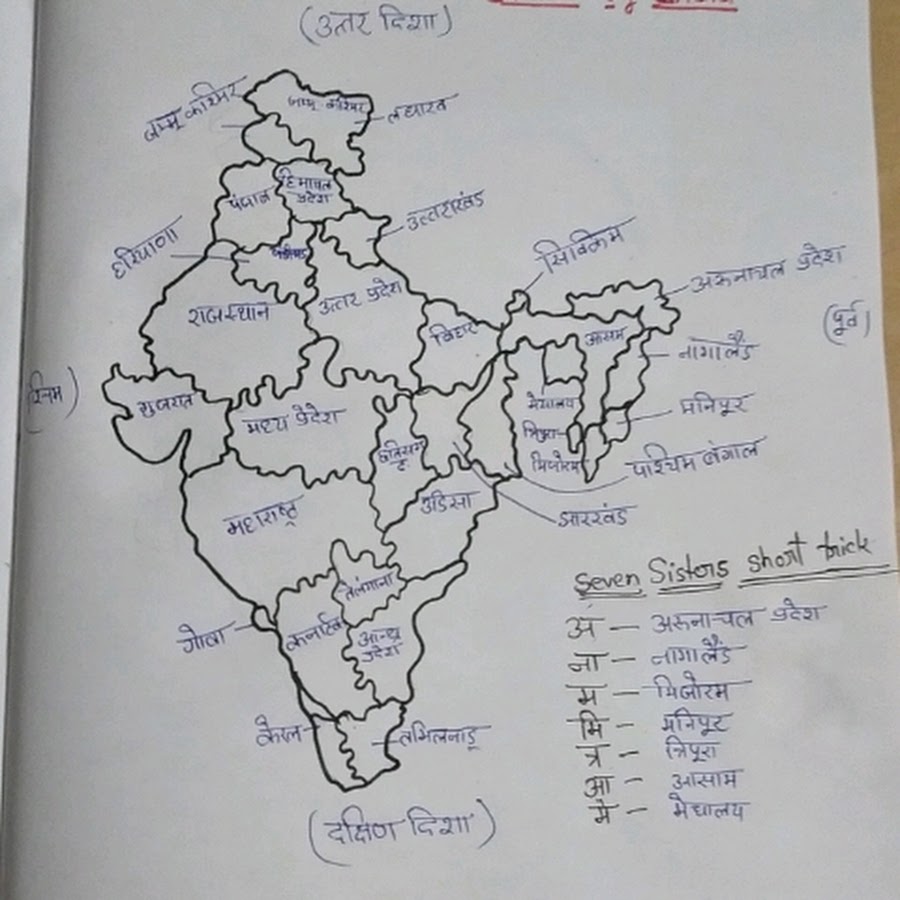 (उत्तर दिशा)
जम्मू कश्मिर
जम्मू कश्मिर
लद्दाख
हिमाचल
प्रदेश
पंजाब
उत्तराखंड
हरियाणा
सिक्किम
अरूनाचल प्रदेश
राजस्थान
उत्तर प्रदेश
बिहार
आसाम
(पूर्व)
नागालैंड
गुजरात
मध्य प्रदेश
छत्तिसग
ढ़
मेघालय
त्रिपुरा
मिजोरम
मनिपूर
पाश्चिम बंगाल
उडिसा
झारखंड
महाराष्ट्र
तेलंगाना
गोवा
कर्नाटक
आन्ध्र
प्रदेश
केरल
तमिलनाडू
(दक्षिण दिशा)
Seven Sisters short trick
अ — अरूनाचल प्रदेश
ना — नागालैंड
म — मिजोरम
मि — मनिपूर
त्र — त्रिपूरा
आ — आसाम
मे — मेघालय